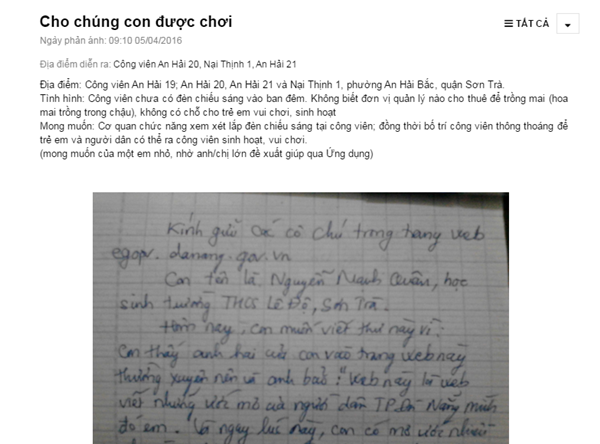 Cho chúng con được chơi
TẤT CẢ
Ngày phản ánh: 09:10 05/04/2016
Địa điểm diễn ra: Công viên An Hải 20, Nại Thịnh 1, An Hải 21
Địa điểm: Công viên An Hải 19; An Hải 20, An Hải 21 và Nại Thịnh 1, phường An Hải Bắc, quận Sơn Trà.
Tình hình: Công viên chưa có đèn chiếu sáng vào ban đêm. Không biết đơn vị quản lý nào cho thuê để trồng mai (hoa
mai trồng trong chậu), không có chỗ cho trẻ em vui chơi, sinh hoạt
Mong muốn: Cơ quan chức năng xem xét lắp đèn chiếu sáng tại công viên; đồng thời bố trí công viên thông thoáng để
trẻ em và người dân có thể ra công viên sinh hoạt, vui chơi.
(mong muốn của một em nhỏ, nhờ anh/chị lớn đề xuất giúp qua Ứng dụng)
Kính gửi các cô chú trong trang web
egov.danang.gov.vn
Con tên là Nguyễn Mạnh Quân, học
sinh trường THCS Lê Độ, Sơn Trà.
Hôm nay, con muốn viết thư này vì:
Con thấy anh hai của con vào trang web này
thường xuyên nên và anh bảo: "Web này là web
viết những ước mơ của người dân TP. Đà Nẵng mình
đó em. Và ngay lúc này, con có mơ ước nhiều